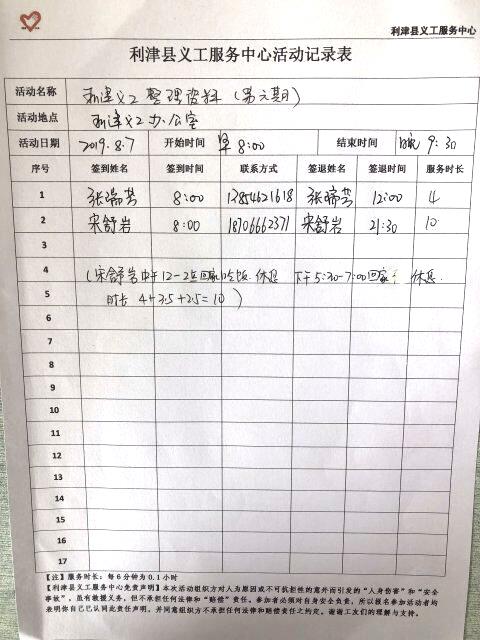 利津县义工服务中心
利津县义工服务中心活动记录表
活动名称 利津义工整理资料（第六期）
活动地点 利津义工办公室
活动日期 2019.8.7 开始时间 早8:00 结束时间 晚9:30
序号 签到姓名 签到时间 联系方式 签退姓名 签退时间 服务时长
1 张瑞芳 8:00 13854621618 张瑞芳 12:00 4
2 宋舒岩 8:00 18706662371 宋舒岩 21:30 10
3
4 （宋舒岩中午12-2点回家吃饭.休息 下午5:30-7:00回家 休息.
5 时长 4+3.5+2.5=10）
6
7
8
9
10
11
12
13
14
15
16
17
【注】服务时长：每6分钟为0.1小时
【利津县义工服务中心免责声明】本次活动组织方对人为原因或不可抗拒性的意外而引发的“人身伤害”和“安全
事故”，虽有救援义务，但不承担任何法律和“赔偿”责任。参加者必须对自身安全负责，所以报名参加活动者均
表明你自己已认同此责任声明，并同意组织方不承担任何法律和赔偿责任之约定。谢谢工友们的理解与支持。